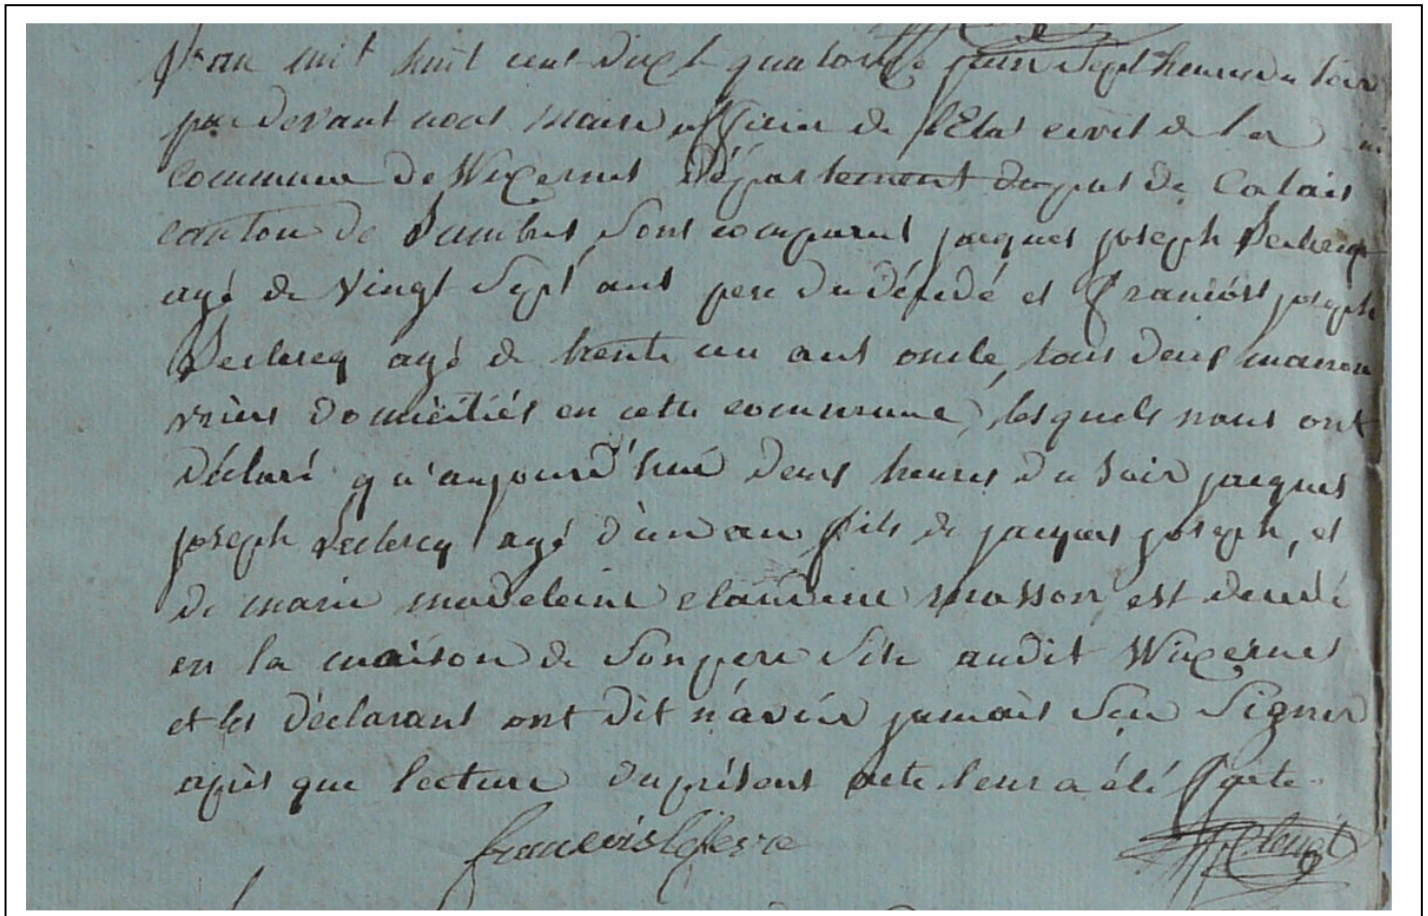 L'an mil huit cent dix le quatorze juin Sept heures du Soir
par devant nous Maire officier de l'Etat civil de la
commune de Wizernes Département du pas de Calais
canton de Lumbres Sont comparus jacques joseph Leclercq
agé de Vingt Sept ans pere du décédé et francois joseph
Leclercq agé de trente un ans oncle, tous deux manou
vriers domiciliés en cette commune, lesquels nous ont
déclaré qu'aujourd'hui deux heures du Soir jacques
joseph Leclercq agé d'un an fils de jacques joseph, et
de marie madeleine masson est décédé
en la maison de Son pere Sise audit Wizernes
et les déclarant ont dit n'avoir jamais Scu Signer
après que lecture du présent acte leur a été faite
francois lefevre